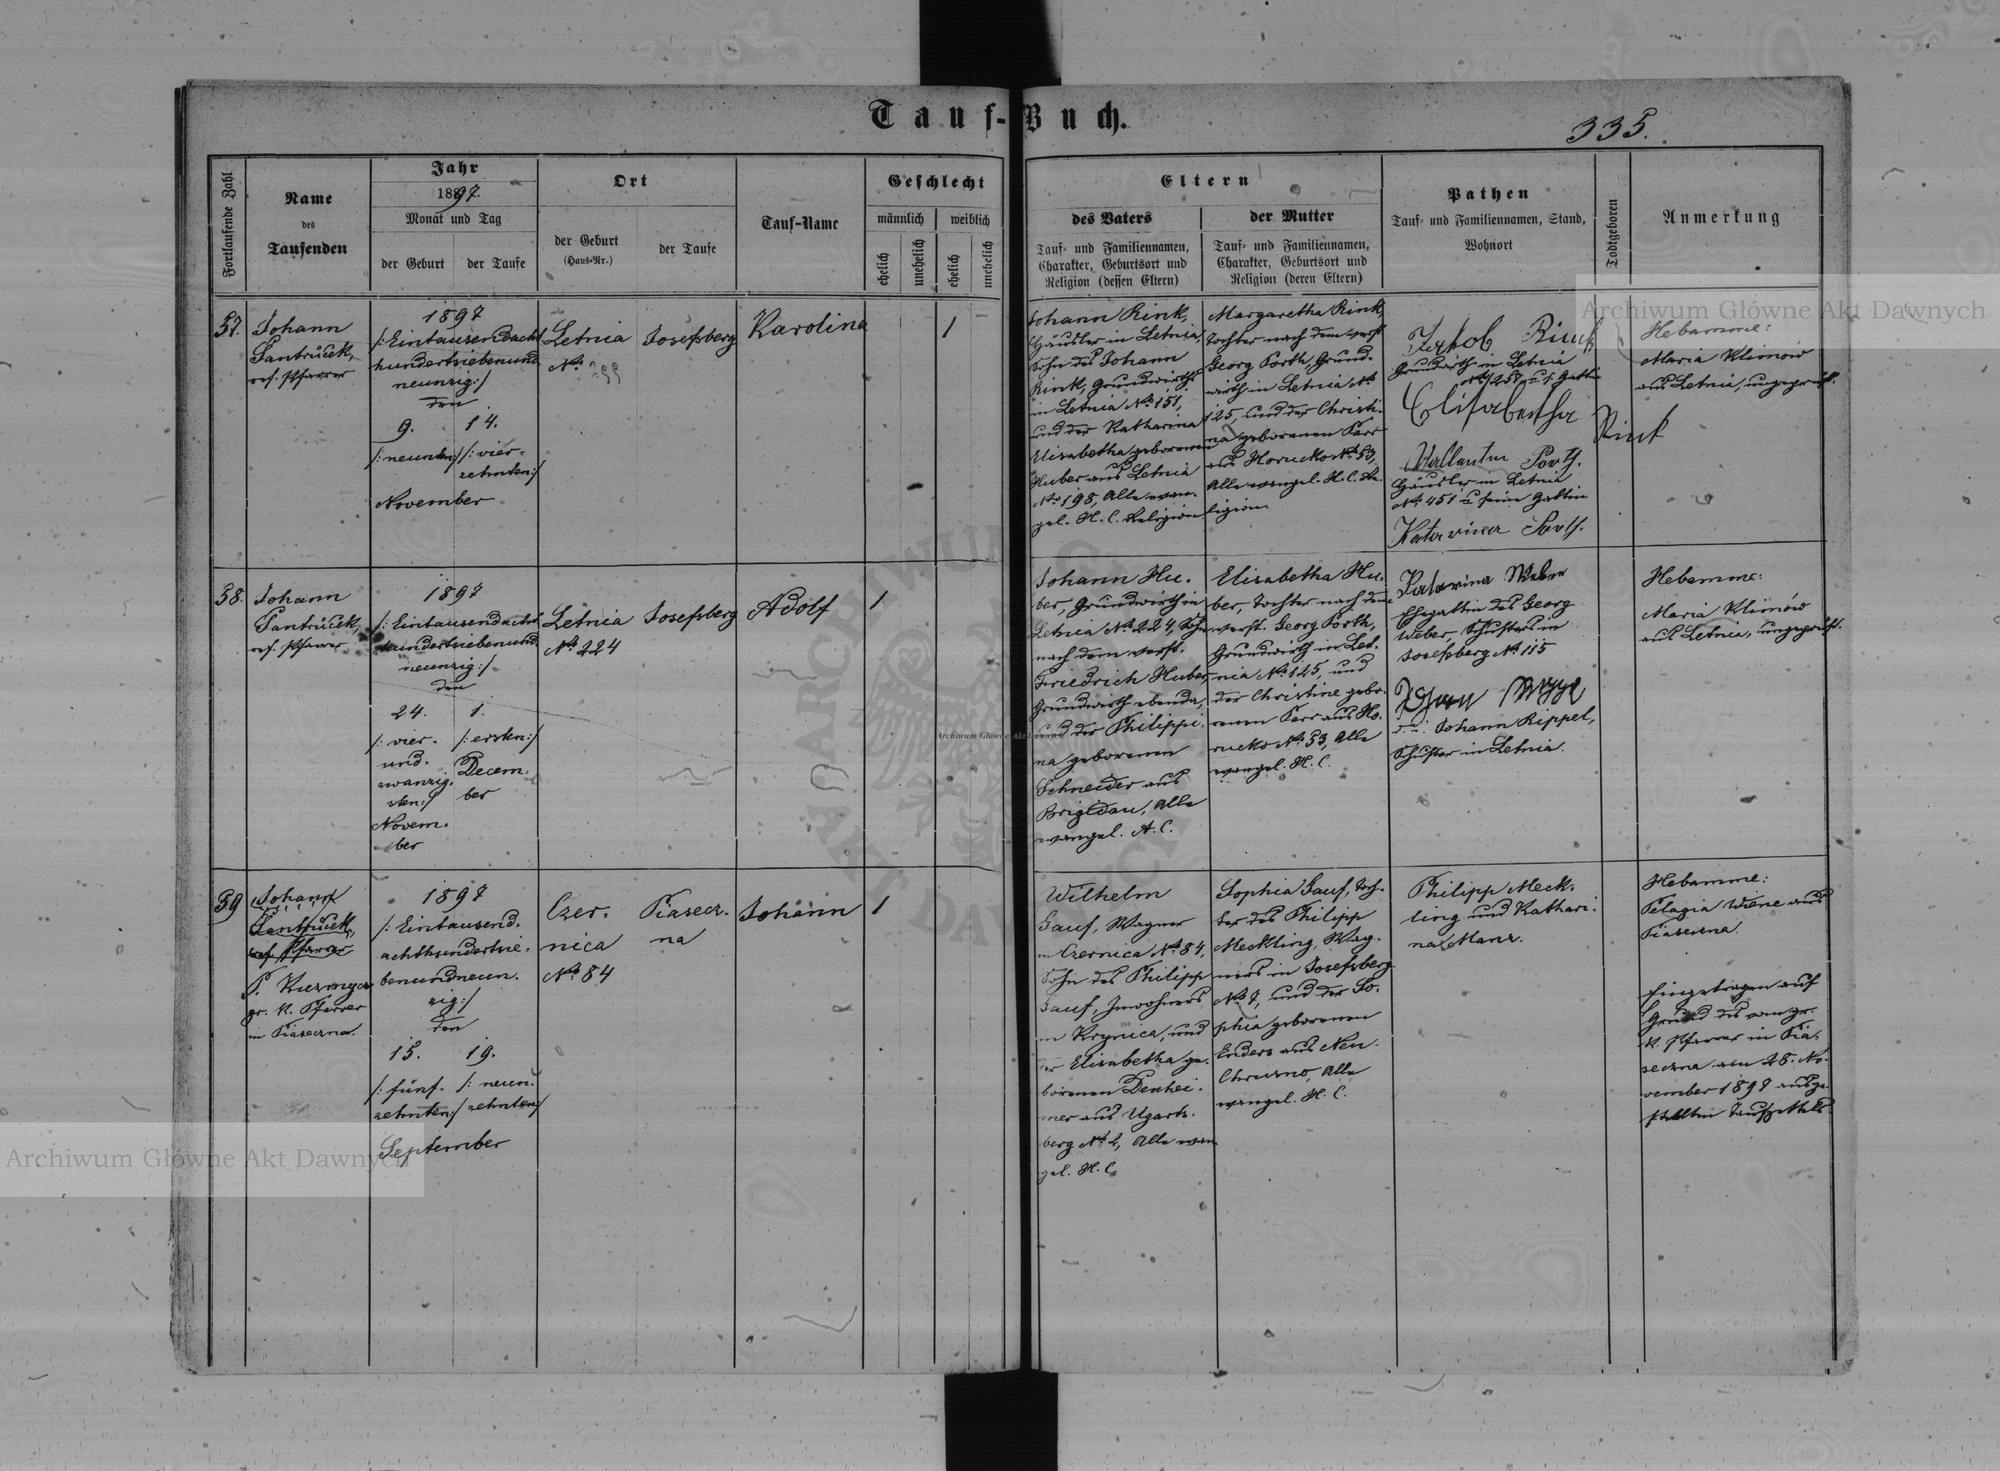 Tauf-Buch.
335.
Fortlaufende Zahl
Name
des
Taufenden
Jahr
1897.
Monat und Tag
der Geburt
der Taufe
Ort
der Geburt
(Haus-Nr.)
der Taufe
Tauf-Name
Geschlecht
männlich
weiblich
ehelich
unehelich
ehelich
unehelich
Eltern
des Vaters
Tauf- und Familiennamen,
Charakter, Geburtsort und
Religion (dessen Eltern)
der Mutter
Tauf- und Familiennamen,
Charakter, Geburtsort und
Religion (deren Eltern)
Pathen
Tauf- und Familiennamen, Stand,
Wohnort
Todtgeboren
Anmerkung
57.
Johann
Santrůček,
ref. Pfarrer
1897
/:Eintausendacht
hundertsiebenund
neunzig:/
den
9.
14.
/:neunten:/
/:vier-
zehnten:/
November
Letnia
No.
Josefsberg
Karolina
1
Johann Rink,
Häusler in Letnia,
Sohn des Johann
Rink, Grundwirths
in Letnia No 151,
und der Katharina
Elisabetha geborenen
Huber aus Letnia
No 198, Alle evan-
gel. H. C. Religion
Margaretha Rink,
Tochter nach dem verst.
Georg Porth, Grund-
wirth in Letnia No
125, und der Christi-
na geborenen Farr
aus Horucko No 53,
Alle evangel. H. C. Re-
ligion.
Jakob Rink
Grundwirth in Letnia
No 257 u. s. Gattin
Elisabetha
Rink
Vallentin Porth.
Häusler in Letnia
No 451 u seine Gattin
Katarina Porth.
Hebamme:
Maria Klimów
aus Letnia, ungeprüft.
58.
Johann
Santrůček,
ref. Pfarrer
1897
/:Eintausendacht
hundertsiebenund
neunzig:/
den
24.
1.
/:vier-
und-
zwanzig-
sten:/
Novem-
ber
/:ersten:/
Decem-
ber
Letnia
No 224
Josefsberg
Adolf
1
Johann Hu-
ber, Grundwirth in
Letnia No 224, Sohn
nach dem verst.
Friedrich Huber,
Grundwirth ebenda,
und der Philippi-
na geborenen
Schneider aus
Brigidau, Alle
evangel. A. C.
Elisabetha Hu-
ber, Tochter nach dem
verst. Georg Porth,
Grundwirth in Let-
nia No 125, und
der Christine gebo-
renen Farr aus Ho-
rucko No 53, Alle
evangel. H. C.
Katarina Weber
Ehegattin des Georg
Weber, Schusters in
Josefsberg No 115
Johann Rippel,
Schuster in Letnia.
Hebamme:
Maria Klimów
aus Letnia, ungeprüft.
59
Johann
Santrůček,
ref. Pfarrer
gr. k. Pfarrer
in Piaseczna.
1897
/:Eintausend-
achthundertsie-
benundneun-
zig:/
den
15.
19.
/:fünf-
zehnten:/
/:neun-
zehnten:/
September
Czer-
nica
No 84
Piasecz-
na
Johann
1
Wilhelm
Gauf, Wagner
in Czernica No 84,
Sohn des Philipp
Gauf, Inwohners
in Krynica, und
der Elisabetha ge-
borenen Denhei-
mer aus Ugarts-
berg No 2, Alle evan
gel. H. C.
Sophia Gauf, Toch-
ter des Philipp
Meckling, Wag-
ners in Josefsberg
No 7, und der So-
phia geborenen
Enders aus Neu-
Chrusno, Alle
evangel. H. C.
Philipp Meck-
ling und Kathari-
na Manz.
Hebamme:
Pelagia Wiene aus
Piaseczna.
Eingetragen auf
Grund des vom gr.
k. Pfarrer in Pia-
seczna am 28. No-
vember 1897 ausge-
stellten Taufzettels
Archiwum Główne Akt Dawnych
Archiwum Główne Akt Dawnych
Archiwum Główne Akt Dawnych
ARCHIWUM GŁÓWNE AKT DAWNYCH